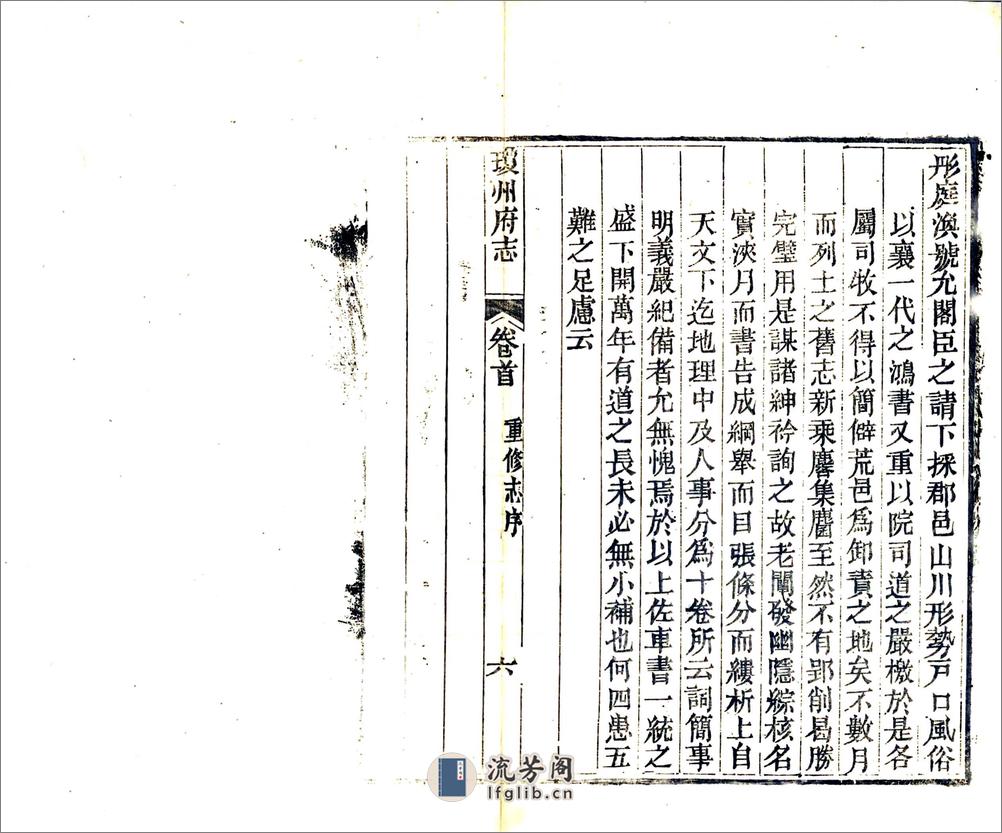 彤庭渙號允閣臣之請下採郡邑山川形勢戸口風俗
以襄一代之鴻書又重以院司道之嚴檄於是各
屬司牧不得以簡僻荒邑爲卸責之地矣不數月
而列土之舊志新乘麏集麕至然不有郢削曷勝
完璧用是謀諸紳衿詢之故老闡發幽隱綜核名
實浹月而書告成綱舉而目張條分而縷析上自
天文下迄地理中及人事分爲十卷所云詞簡事
明義嚴紀備者允無愧焉於以上佐車書一統之
盛下開萬年有道之長未必無小補也何四患五
難之足慮云
瓊州府志
卷首
重修志序
六
流芳阁
lfglib.cn